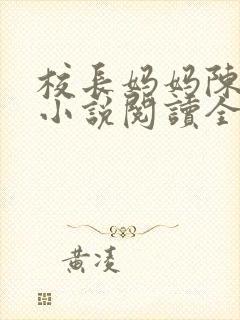 校長媽媽陳
小說閱讀全
黃凌